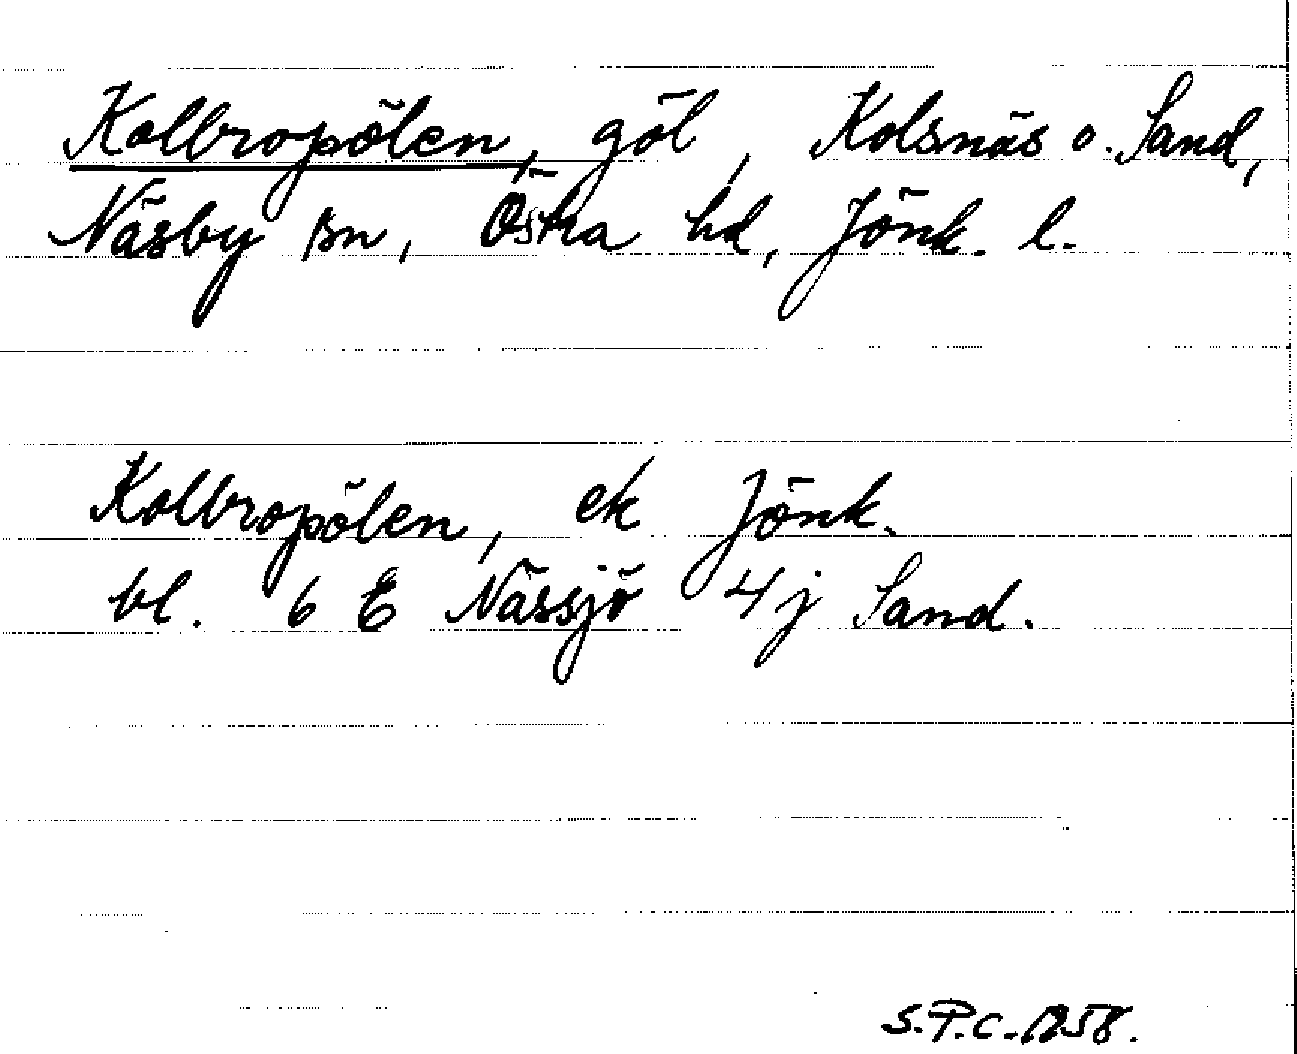 Kolbropölen, göl, Kolsnäs o. Sand,
Näsby sn, Östra hd, Jönk. l.
Kolbropölen, ek Jönk.
bl. 6 E Nässjö 4j Sand.
S.P.C. 1958.